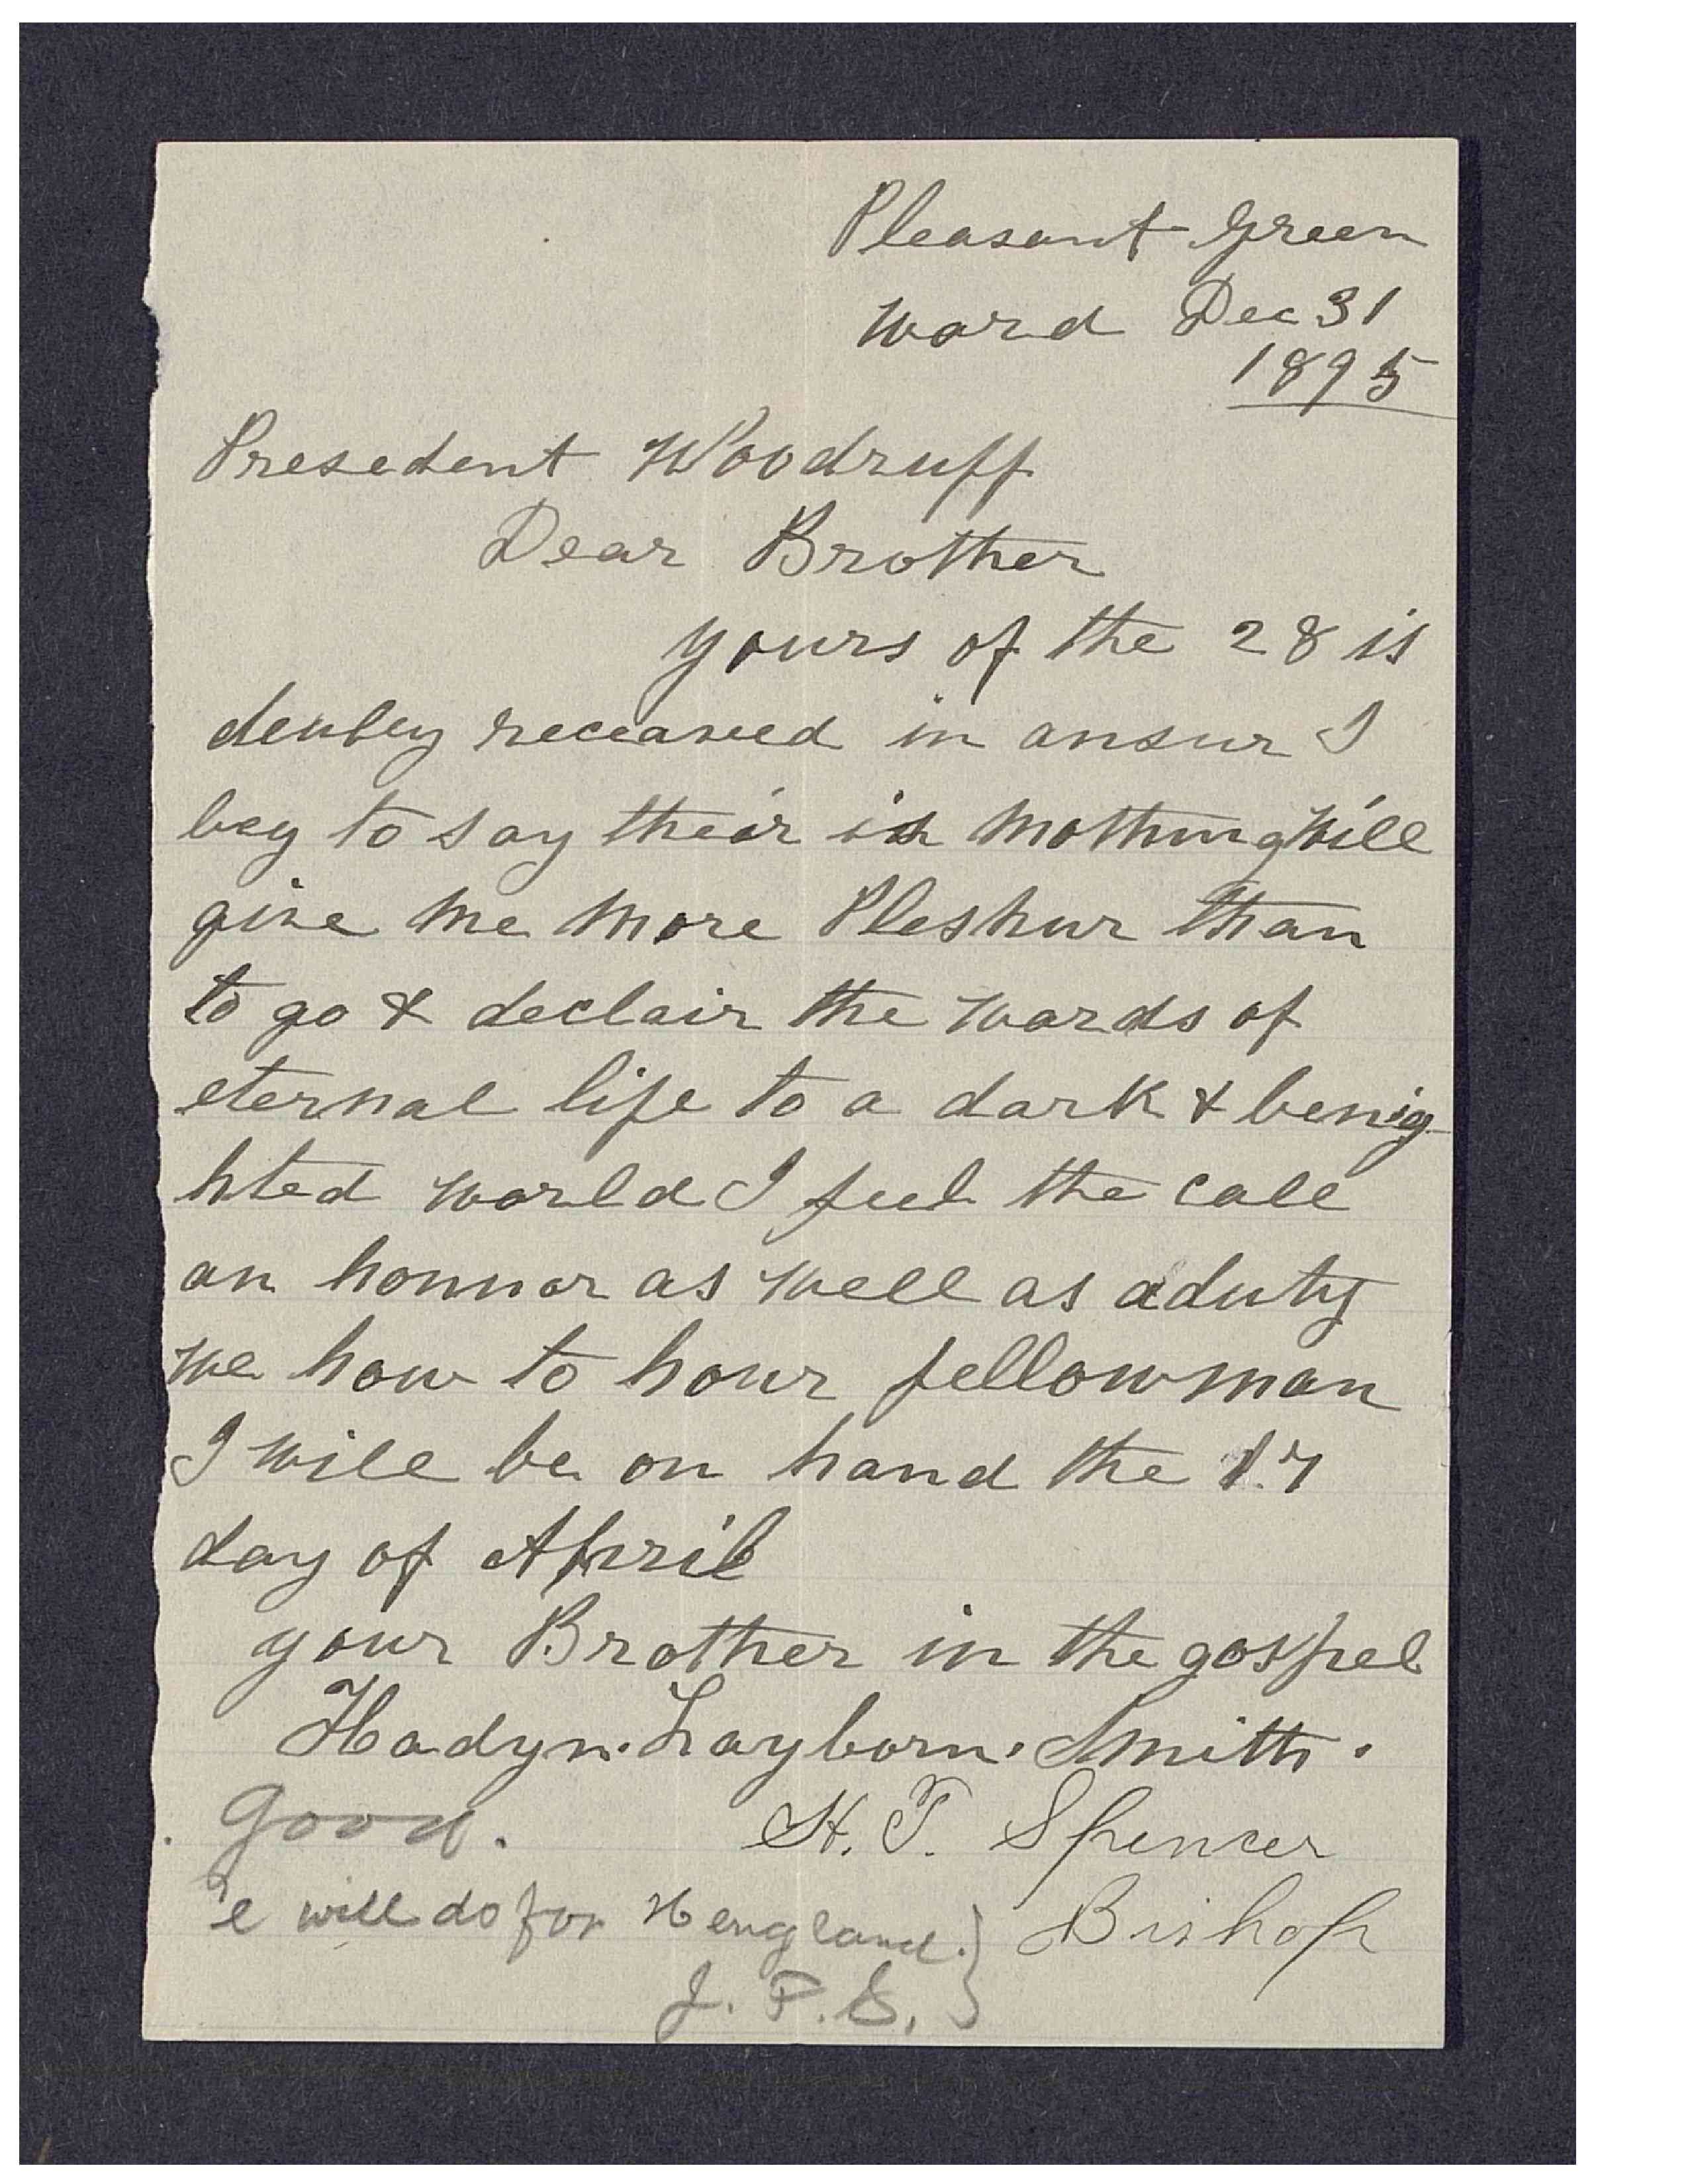 Pleasant Green
Ward Dec 31
1895
Presedent Woodruff
Dear Brother
yours of the 28 is
deuley receaved in ansur I
beg to say their is nothing Will
give me more Pleshur than
to go & declair the words of
eternal life to a dark & benig
hted world I feel the call
an honnor as well as a duty
we how to hour fellowman
I will be on hand the 17
day of April
your Brother in the gospel
Hadyn. Layborn. Smith.
Good. H. T. Spencer
'e will do for Hengland.} Bishop
J. F. S.